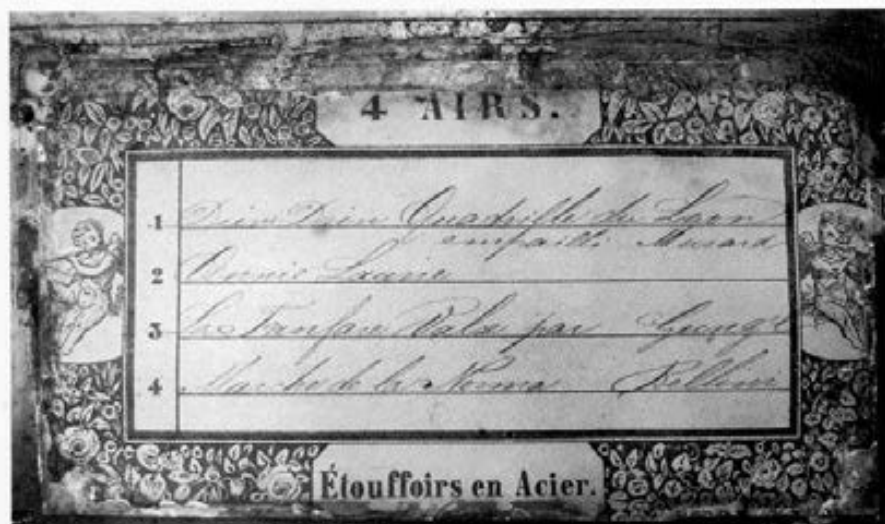 4 AIRS.
1 Drin Drin Quadrille du Lyon
empaillé Musard
2 Annie Laurie
3 La Fanfare Valse par Gung'l
4 Marche de la Norma Bellini
Étouffoirs en Acier.